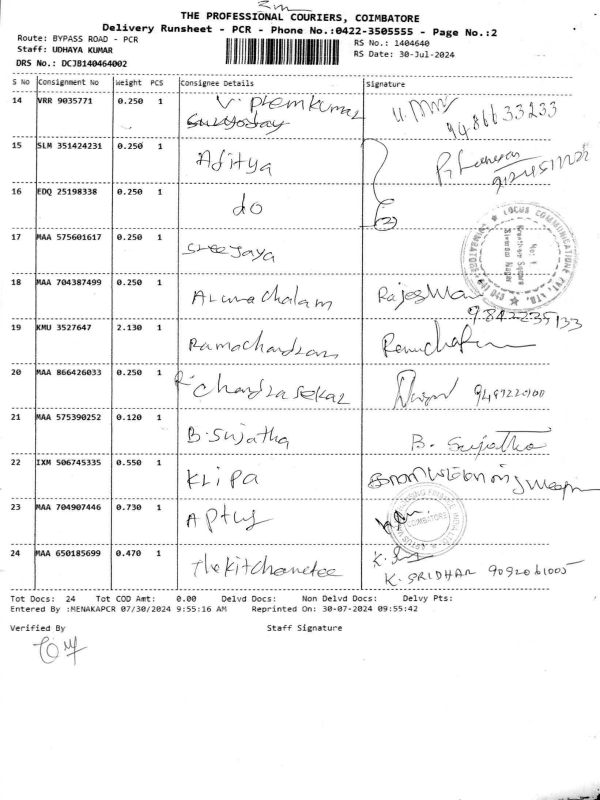 THE PROFESSIONAL COURIERS, COIMBATORE
Delivery Runsheet - PCR - Phone No.:0422-3505555 - Page No.:2
Route: BYPASS ROAD - PCR
RS No.: 1404640
Staff: UDHAYA KUMAR
RS Date: 30-Jul-2024
DRS No.: DCJB140464002
S No Consignment No Weight PCS Consignee Details Signature
14 VRR 9035771 0.250 1 V. Premkumar
9486633233
15 SLM 351424231 0.250 1 Aditya
16 EDQ 25198338 0.250 1 do
17 MAA 575601617 0.250 1 Sree Jaya
LOCUS COMMUNICATIONS PVT. LTD.
18 MAA 704387499 0.250 1 Arunachalam Rajeswari
9842235133
19 KMU 3527647 2.130 1 Ramachandran
20 MAA 866426033 0.250 1 R. Chandrasekar
21 MAA 575390252 0.120 1 B. Sujatha B. Sujatha
22 IXM 506745335 0.550 1 Kripa
23 MAA 704907446 0.730 1 Aptus
COIMBATORE
24 MAA 650185699 0.470 1
K. SRIDHAR 9092061005
Tot Docs: 24 Tot COD Amt: 0.00 Delvd Docs: Non Delvd Docs: Delvy Pts:
Entered By :MENAKAPCR 07/30/2024 9:55:16 AM Reprinted On: 30-07-2024 09:55:42
Verified By Staff Signature